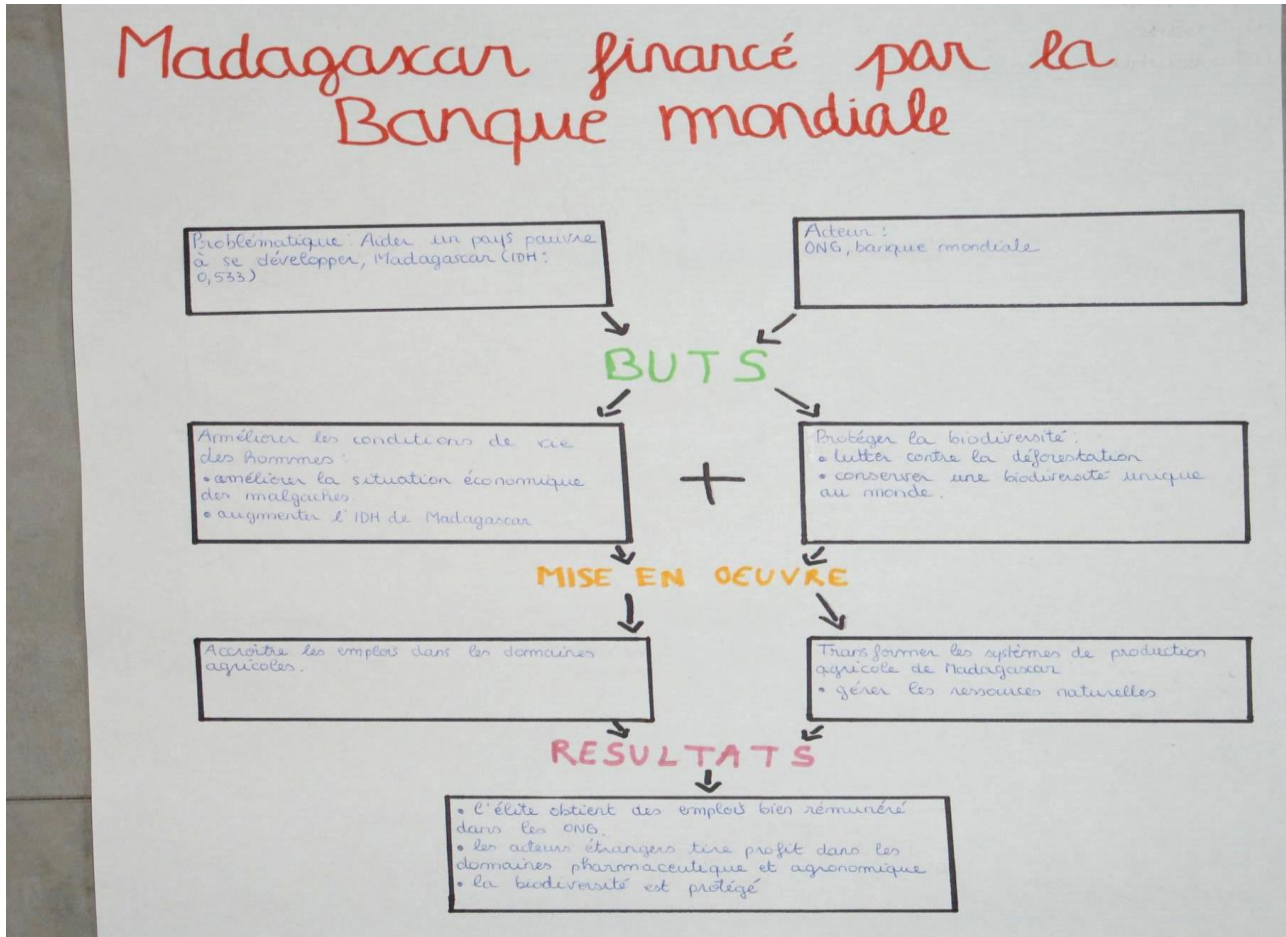 Madagascar financé par la
Banque mondiale
Problématique: Aider un pays pauvre
à se développer, Madagascar (IDH:
0,533)
Acteur :
ONG, banque mondiale
BUTS
Améliorer les conditions de vie
des hommes:
• améliorer la situation économique
des malgaches.
• augmenter l'IDH de Madagascar
+
Protéger la biodiversité:
• lutter contre la déforestation
• conserver une biodiversité unique
au monde.
MISE EN OEUVRE
Accroître les emplois dans les domaines
agricoles.
Transformer les systèmes de production
agricole de Madagascar
• gérer les ressources naturelles
RESULTATS
• l'élite obtient des emplois bien rémunéré
dans les ONG.
• les acteurs étrangers tire profit dans les
domaines pharmaceutique et agronomique
• la biodiversité est protégé